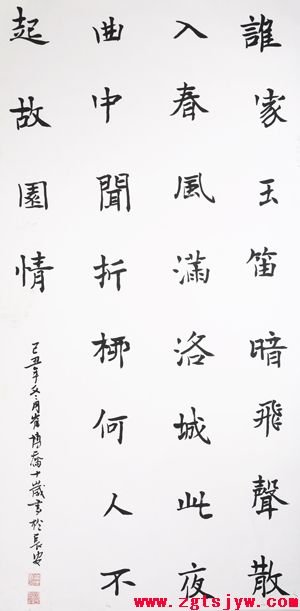 誰家玉笛暗飛聲散
入春風滿洛城此夜
曲中聞折柳何人不
起故園情
己丑年冬月崔博十歲書於長安
www.zgtsjyw.com